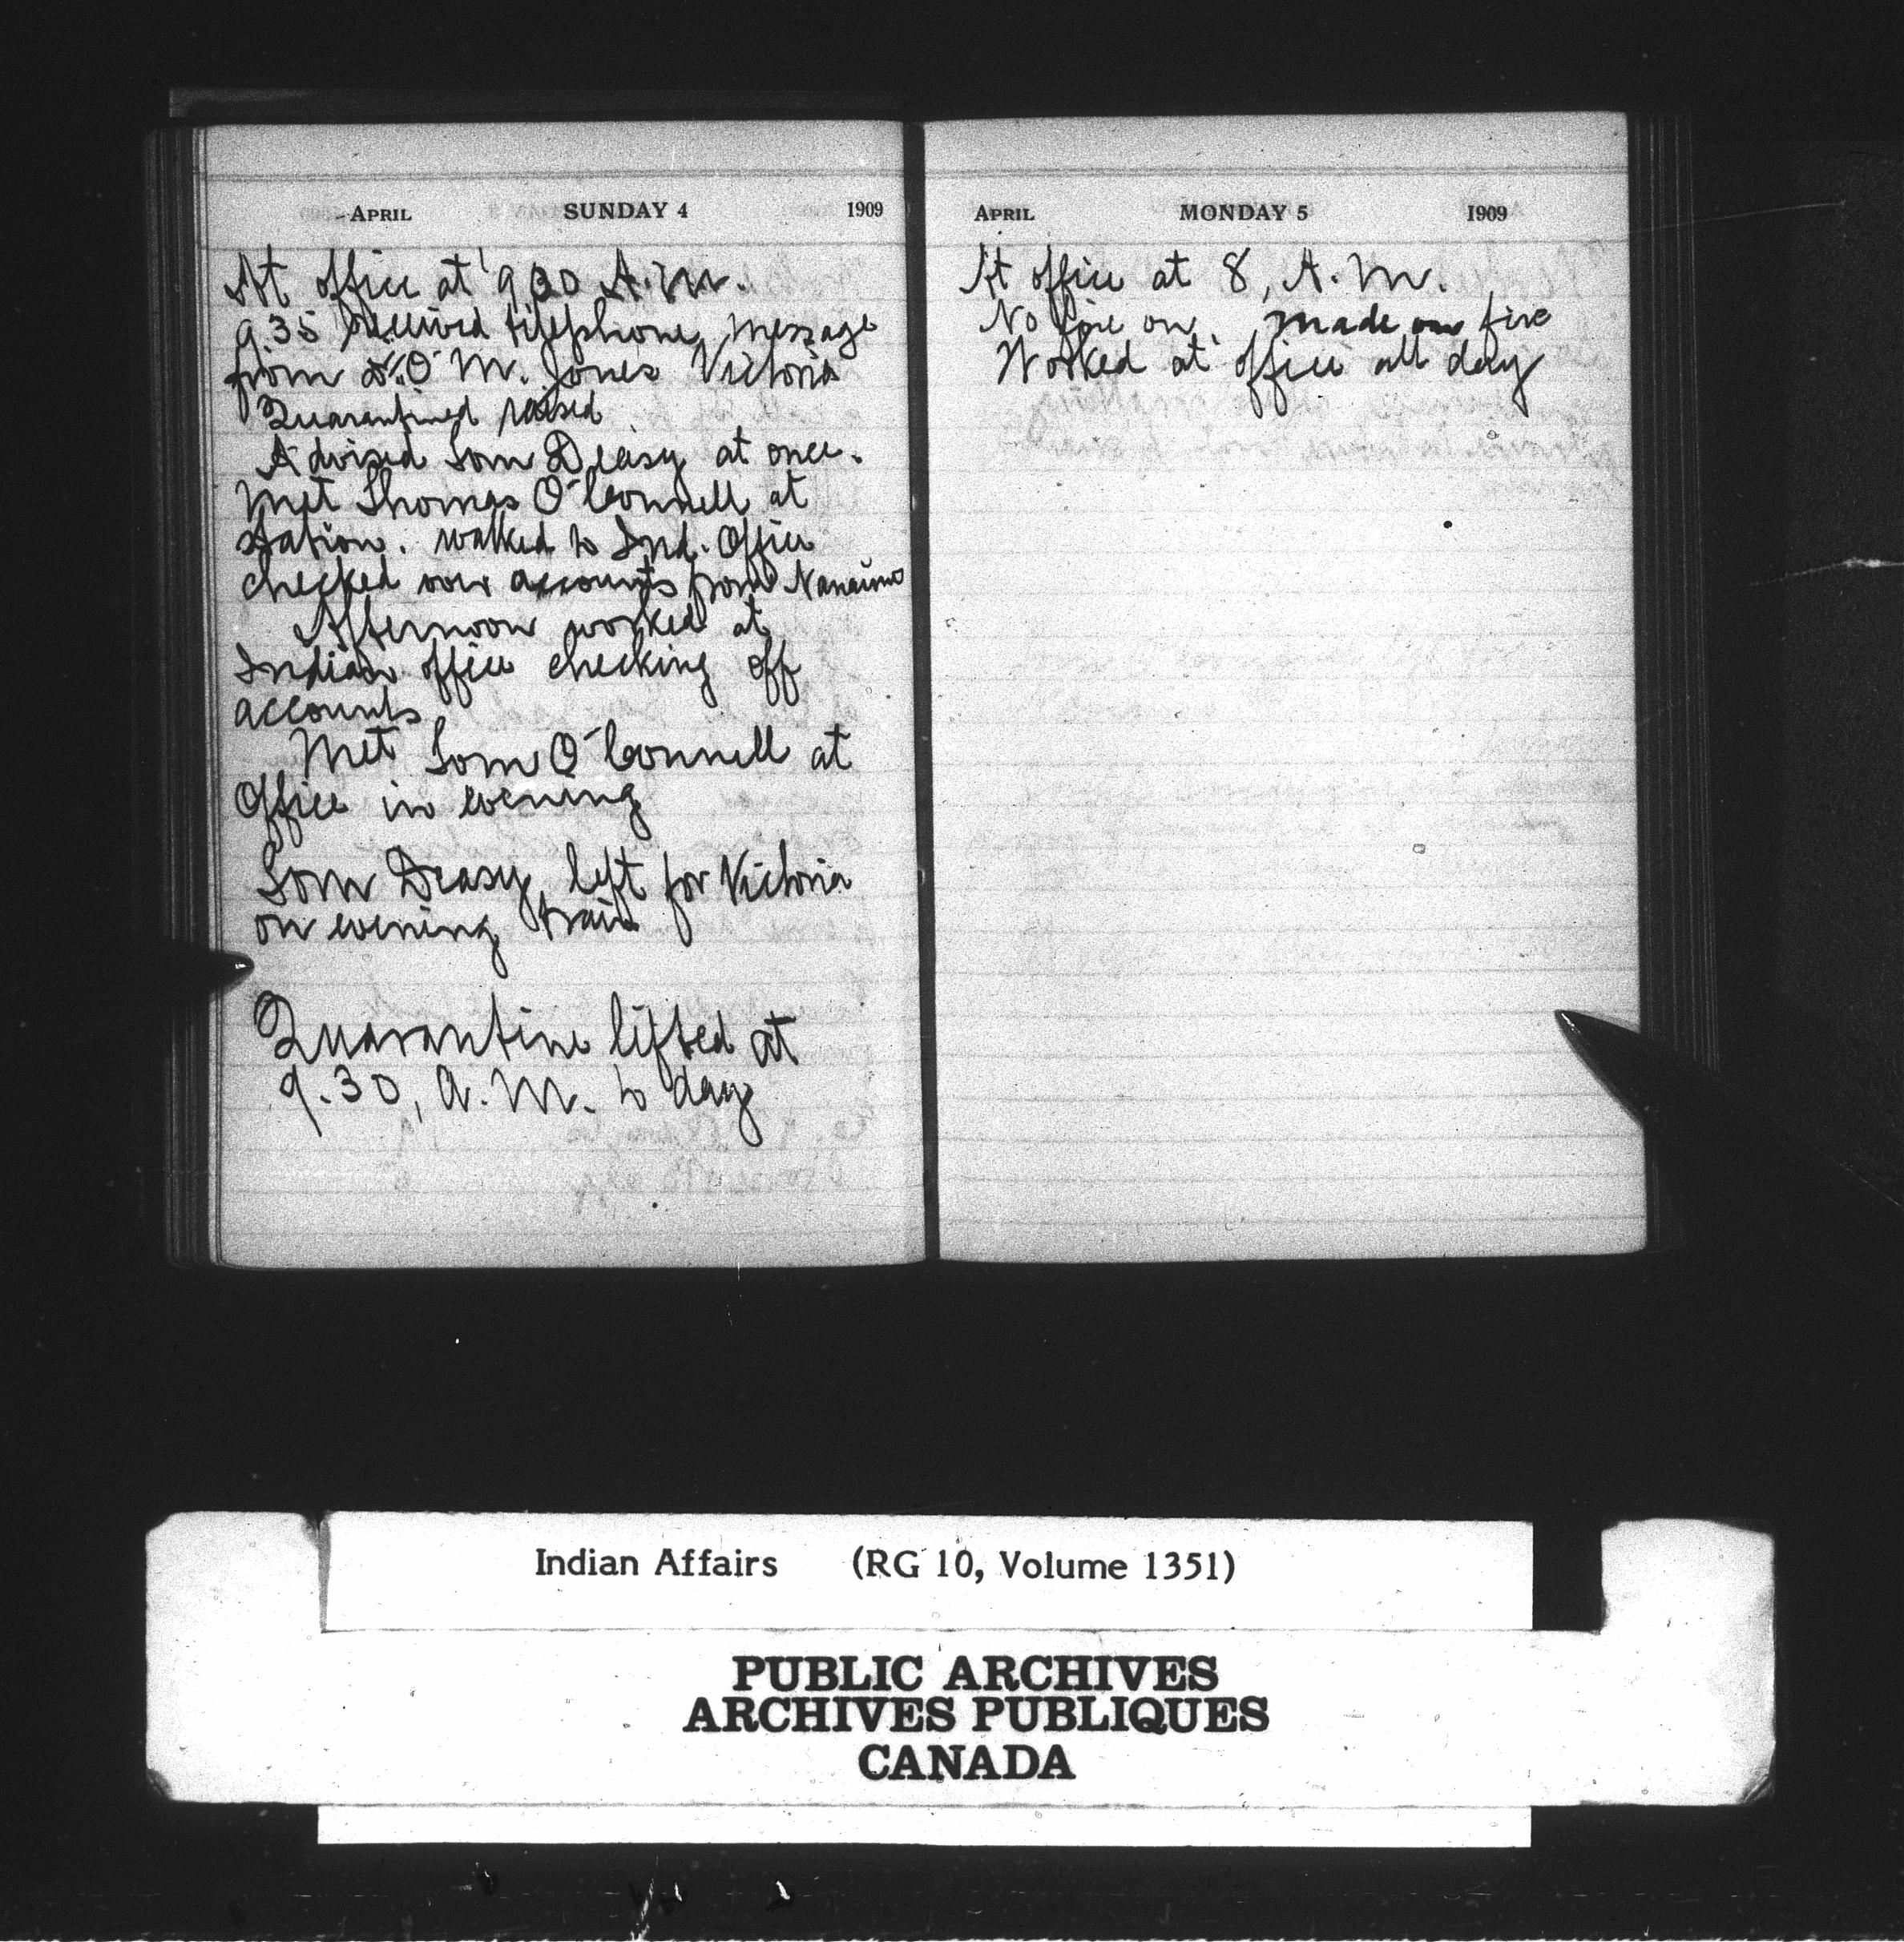 APRIL SUNDAY 4 1909
At office at 9 30 A.M.
9.35 Received telephone message
from O. M. Jones Victoria
Quarantined raised
Advised Tom Deasy at once.
Met Thomas O'Connell at
station. walked to Ind. Office
checked over accounts from Nanaimo
Afternoon worked at
Indian office checking off
accounts
Met Tom O'Connell at
Office in evening
Tom Deasy left for Victoria
on evening train
Quarantine lifted at
9.30, A.M. to day
APRIL MONDAY 5 1909
At office at 8, A.M.
No fire on. made on fire
Worked at office all day
Indian Affairs (RG 10, Volume 1351)
PUBLIC ARCHIVES
ARCHIVES PUBLIQUES
CANADA